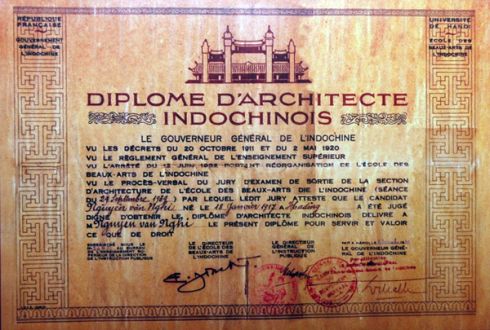 RÉPUBLIQUE
FRANÇAISE
GOUVERNEMENT
GÉNÉRAL DE
L'INDOCHINE
UNIVERSITÉ
DE HANOI
ÉCOLE DES
BEAUX-ARTS DE
L'INDOCHINE
DIPLOME D'ARCHITECTE
INDOCHINOIS
LE GOUVERNEUR GÉNÉRAL DE L'INDOCHINE
VU LES DÉCRETS DU 20 OCTOBRE 1911 ET DU 2 MAI 1920
VU LE RÈGLEMENT GÉNÉRAL DE L'ENSEIGNEMENT SUPÉRIEUR
VU L'ARRÊTÉ DU JUIN PORTANT RÉORGANISATION DE L'ÉCOLE DES
BEAUX-ARTS DE L'INDOCHINE
VU LE PROCÈS-VERBAL DU JURY D'EXAMEN DE SORTIE DE LA SECTION
D'ARCHITECTURE DE L'ÉCOLE DES BEAUX-ARTS DE L'INDOCHINE (SÉANCE
DU 29 Septembre) PAR LEQUEL LEDIT JURY ATTESTE QUE LE CANDIDAT
Nguyên văn Nghi NÉ LE Janvier 1917 A A ÉTÉ JUGÉ
DIGNE D'OBTENIR LE DIPLÔME D'ARCHITECTE INDOCHINOIS DÉLIVRE A
M Nguyên văn Nghi LE PRÉSENT DIPLÔME POUR SERVIR ET VALOIR
CE QUE DE DROIT
LE DIRECTEUR
DE L'ÉCOLE DES
BEAUX-ARTS DE
L'INDOCHINE
LE DIRECTEUR
GÉNÉRAL DE
L'INSTRUCTION
PUBLIQUE
LE GOUVERNEUR GÉ-
NÉRAL DE L'INDOCHINE